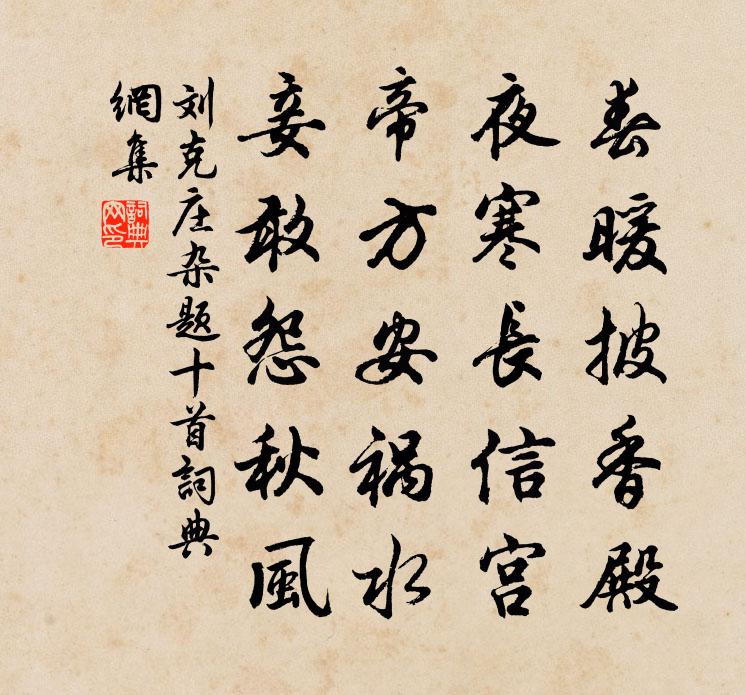 春暖披香殿
夜寒長信宫
帝方安祸水
妾敢怨秋風
刘克庄杂题十首詞典
網集
詞典
网印